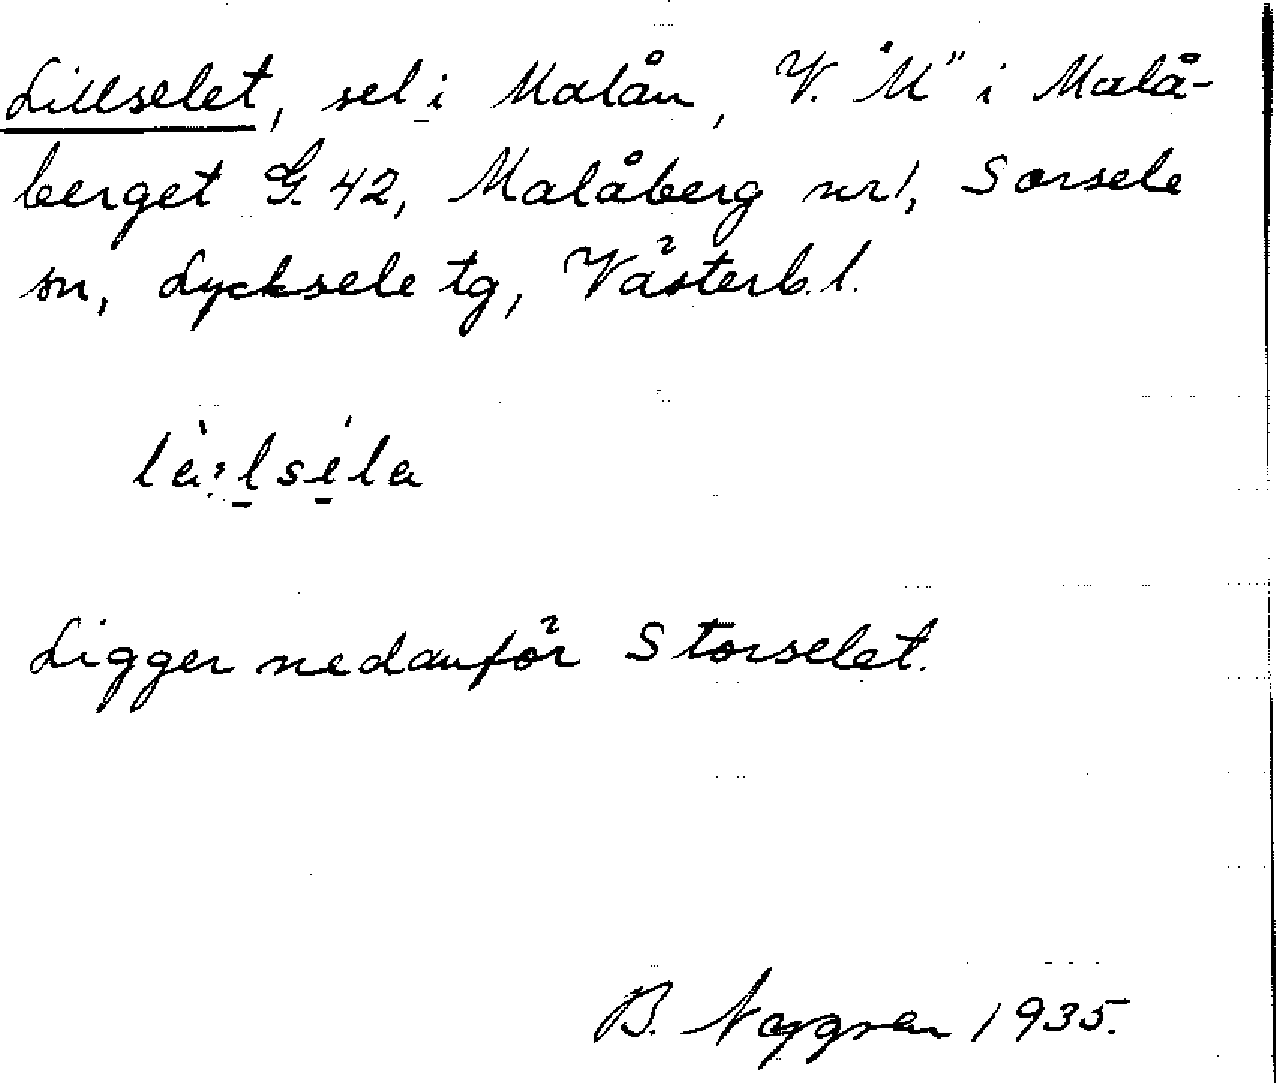 Lillselet, sel i Malån, V. "M" i Malå-
berget G. 42, Malåberg nr 1, Sorsele
sn, Lycksele tg, Västerb. l.
Ligger nedanför Storselet.
B. Nyggren 1935.